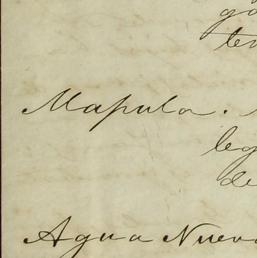 te
Mapula.
leg
de
Agua Nueva